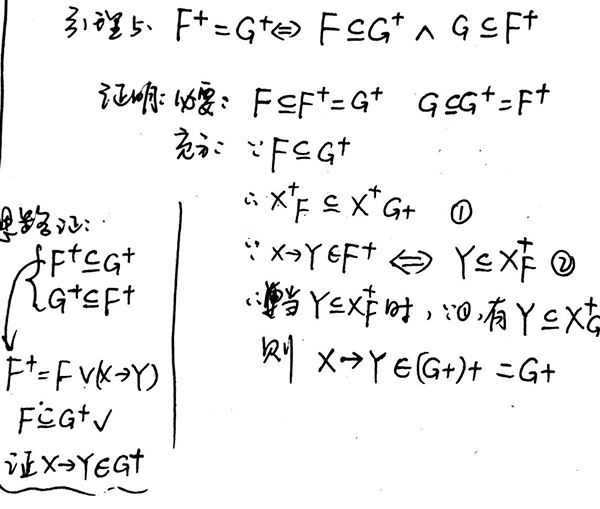 引理5. F⁺=G⁺⇔ F⊆G⁺ ∧ G⊆F⁺
证明: 必要: F⊆F⁺=G⁺ G⊆G⁺=F⁺
充分: ∵F⊆G⁺
∴X⁺F ⊆ X⁺G+ ①
∵X→Y∈F⁺ ⇔ Y⊆X⁺F ②
当Y⊆X⁺F时, ∵①,有Y⊆X⁺G
则 X→Y∈(G+)+ =G+
思路证:
F⁺⊆G⁺
G⁺⊆F⁺
F⁺=F∨(X→Y)
F⊆G⁺✓
证X→Y∈G⁺